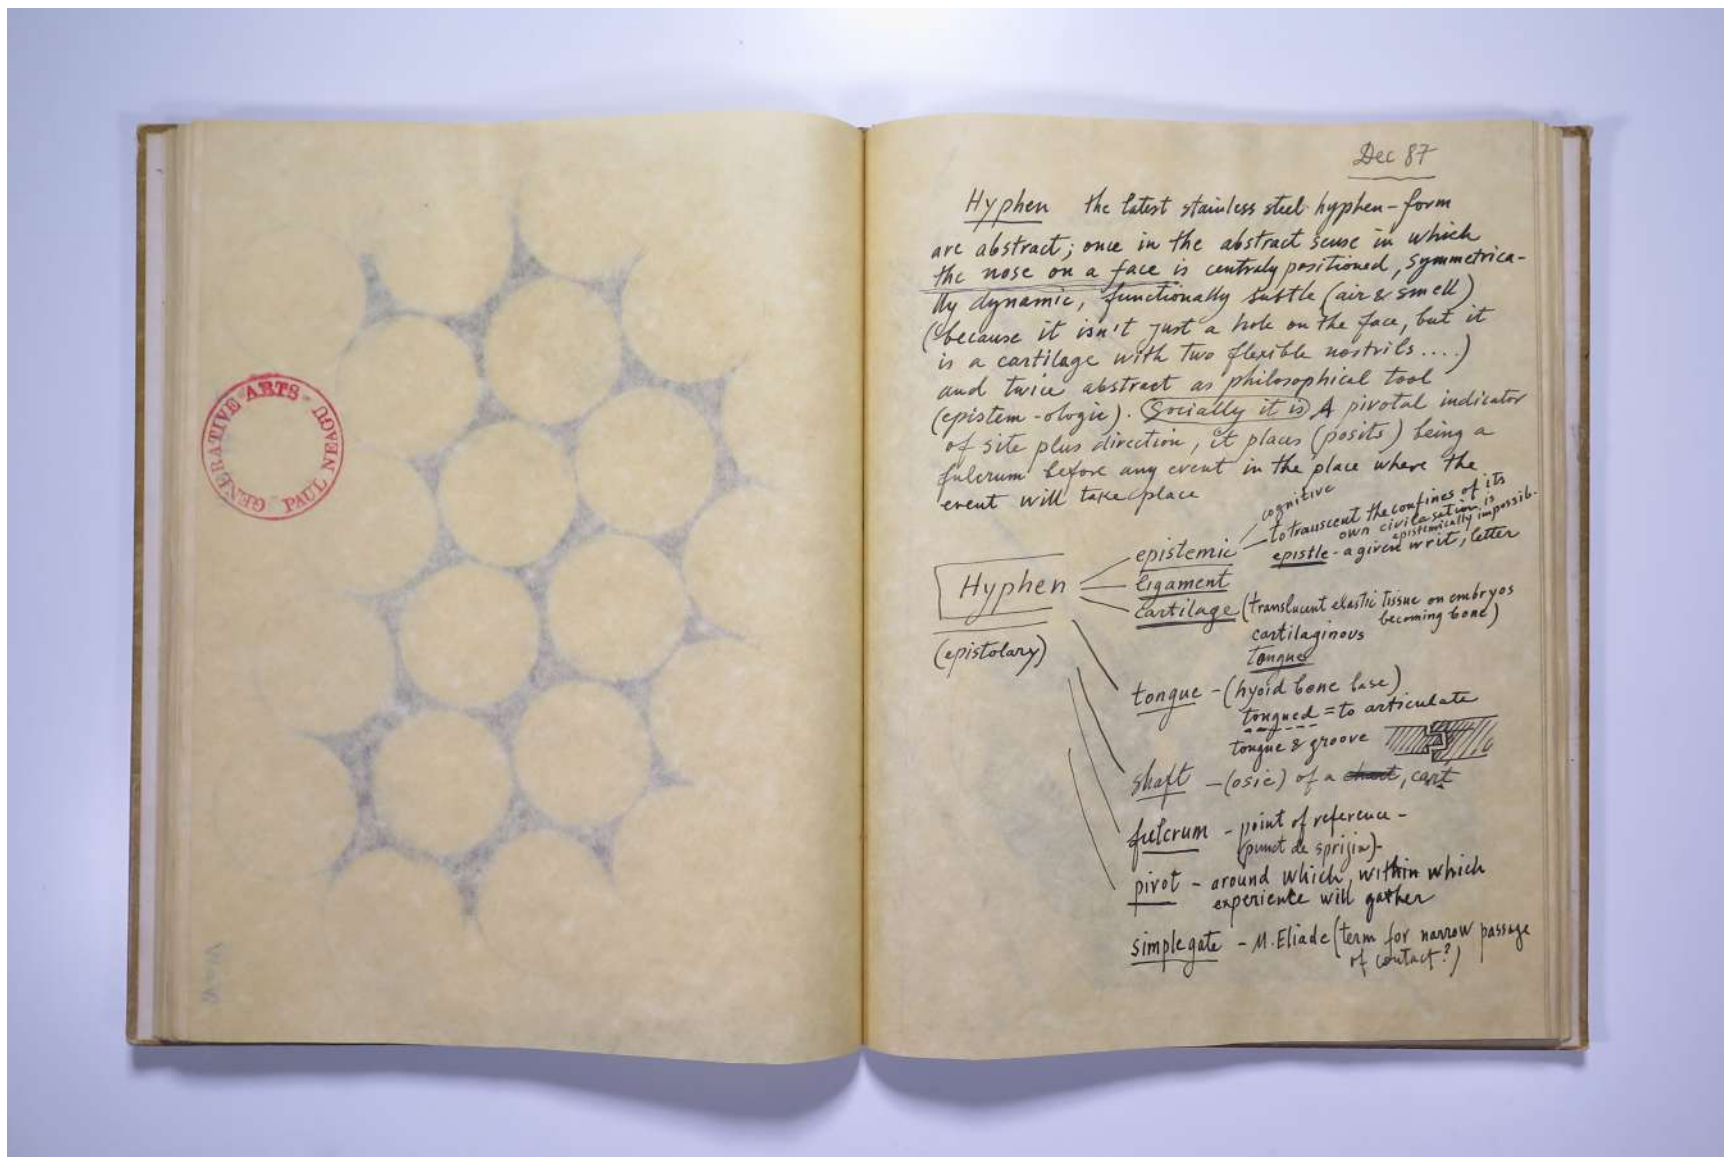 GENERATIVE ARTS - PAUL NEAGU
Dec 87
Hyphen the latest stainless steel hyphen-form
are abstract; once in the abstract sense in which
the nose on a face is centraly positioned, symmetrica-
lly dynamic, functionally subtle (air & smell)
(because it isn't just a hole on the face, but it
is a cartilage with two flexible nostrils....)
and twice abstract as philosophical tool
(epistem-ologic). Socially it is A pivotal indicator
of site plus direction, it places (posits) being a
fulcrum before any event in the place where the
event will take place
cognitive
epistemic - to transcent the confines of its
own civilasation is
epistemically impossib.
epistle - a given writ, letter
Hyphen
ligament
cartilage (translucent elastic tissue on embryos
becoming bone)
cartilaginous
tongue
(epistolary)
tongue - (hyoid bone base)
tongued = to articulate
tongue & groove
shaft - (osie) of a chart, cart
fulcrum - point of reference -
(punct de sprijin) -
pivot - around which, within which
experience will gather
simplegate - M. Eliade (term for narrow passage
of contact?)